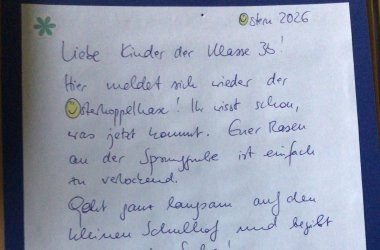 Ostern 2026
Liebe Kinder der Klasse 3b!
Hier meldet sich wieder der
Osterhoppelhase! Ihr wisst schon,
was jetzt kommt. Euer Rasen
an der Sprunggrube ist einfach
zu verlockend.
Geht ganz langsam auf den
kleinen Schulhof und begibt